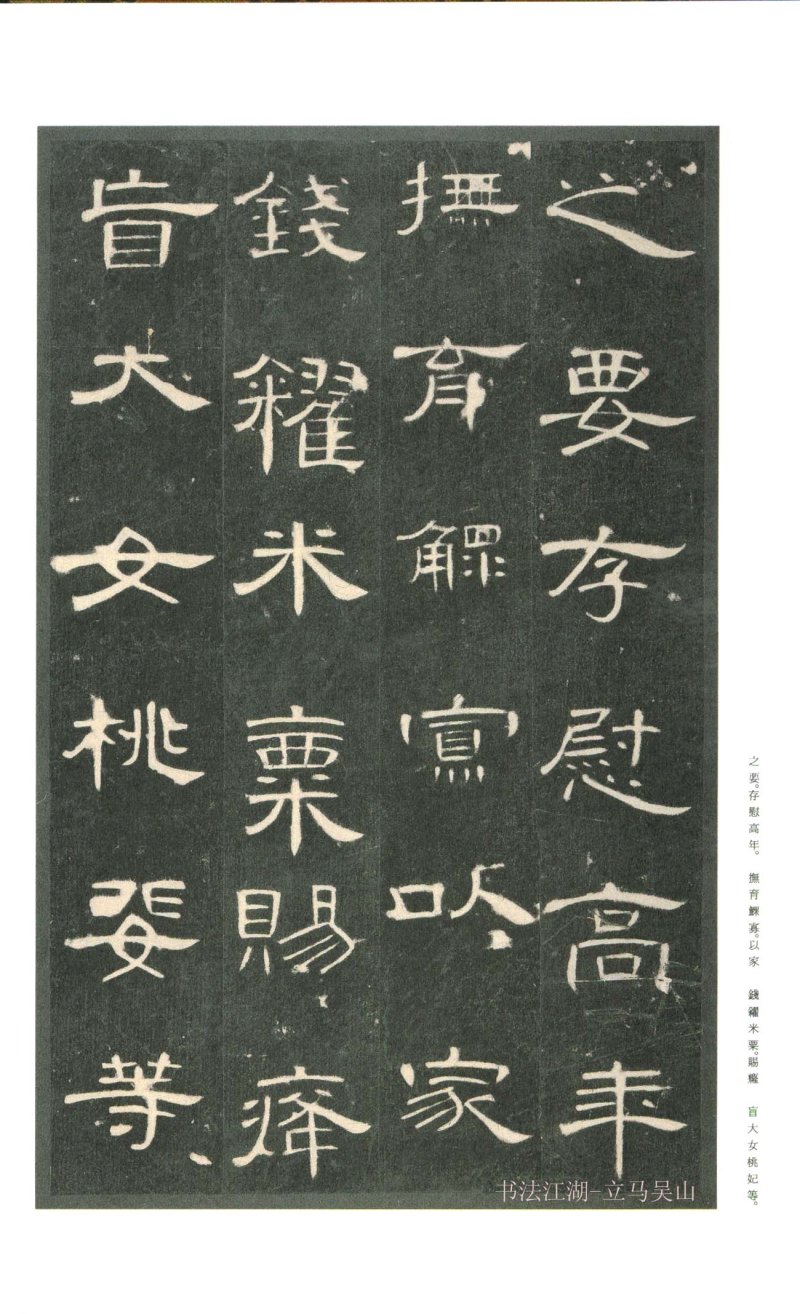 之要存慰高年
撫育鰥寡以家
錢糴米粟賜㾮
盲大女桃婓等
之要。存慰高年。 撫育鰥寡。以家 錢糴米粟。賜癃 盲大女桃妃等。
书法江湖-立马吴山